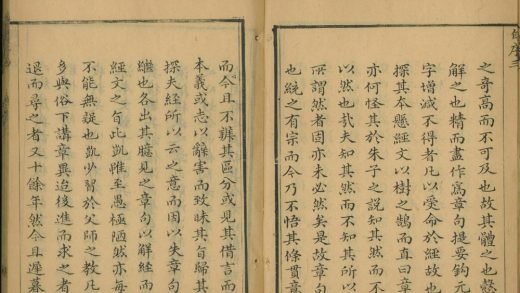 之奇高而不可及也故其體之也
解之也精而盡作寫章句提要鈎元
字增減不得者凡以受命於經故也
探其本懸經文以樹之鵠而直曰章
亦何怪其於朱子之說知其然而不
以然也哉夫知其然而不知其所以
所謂然者固亦未必然矣是故章句
也統之有宗而今乃不悟其條貫章
而今且不辨其區分或見其借言而
本義或忘以辭害而致昧其旨歸其
探夫經所以云之意而因以失章句
繼也各出其臆見之章句以解經而
經文之旨此凱惟至愚極陋然亦每
不能無疑也凱少習於父師之教凡
多與俗下講章異迨後進而求之者
退而尋之者又十餘年然今且遲暮